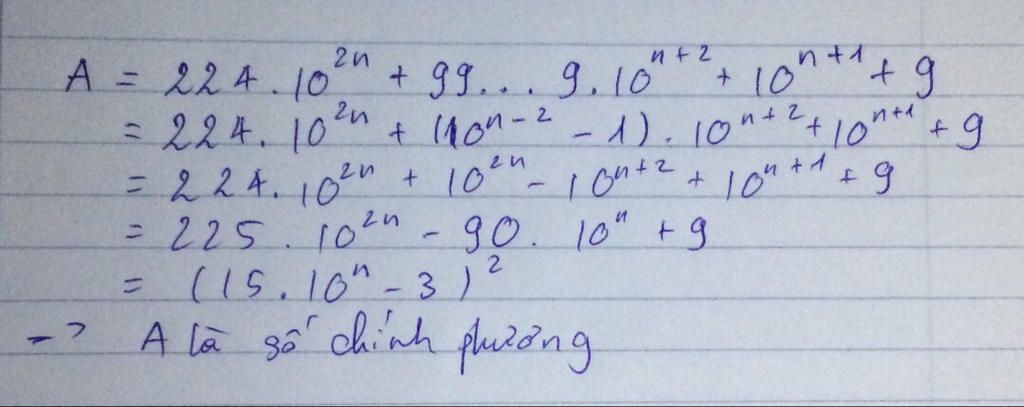 A = 224.10^{2n} + 99...9.10^{n+2} + 10^{n+1} + 9
= 224.10^{2n} + (10^{n-2} - 1).10^{n+2} + 10^{n+1} + 9
= 224.10^{2n} + 10^{2n} - 10^{n+2} + 10^{n+1} + 9
= 225.10^{2n} - 90.10^{n} + 9
= (15.10^{n} - 3)^{2}
-> A là số chính phương